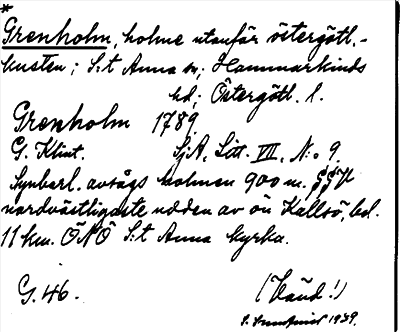 *
Grenholm, holme utanför östergötl.-
kusten; S:t Anna sn; Hammarkinds
hd; Östergötl. l.
Grenholm 1789.
G. Klint. SjA, Litt. VII, N:o 9.
Synbarl. avsågs holmen 900 m. SSV
nordvästligaste udden av ön Kallsö, bel.
11 km. ÖNÖ S:t Anna kyrka.
G. 46. (Vänd!)
1939.